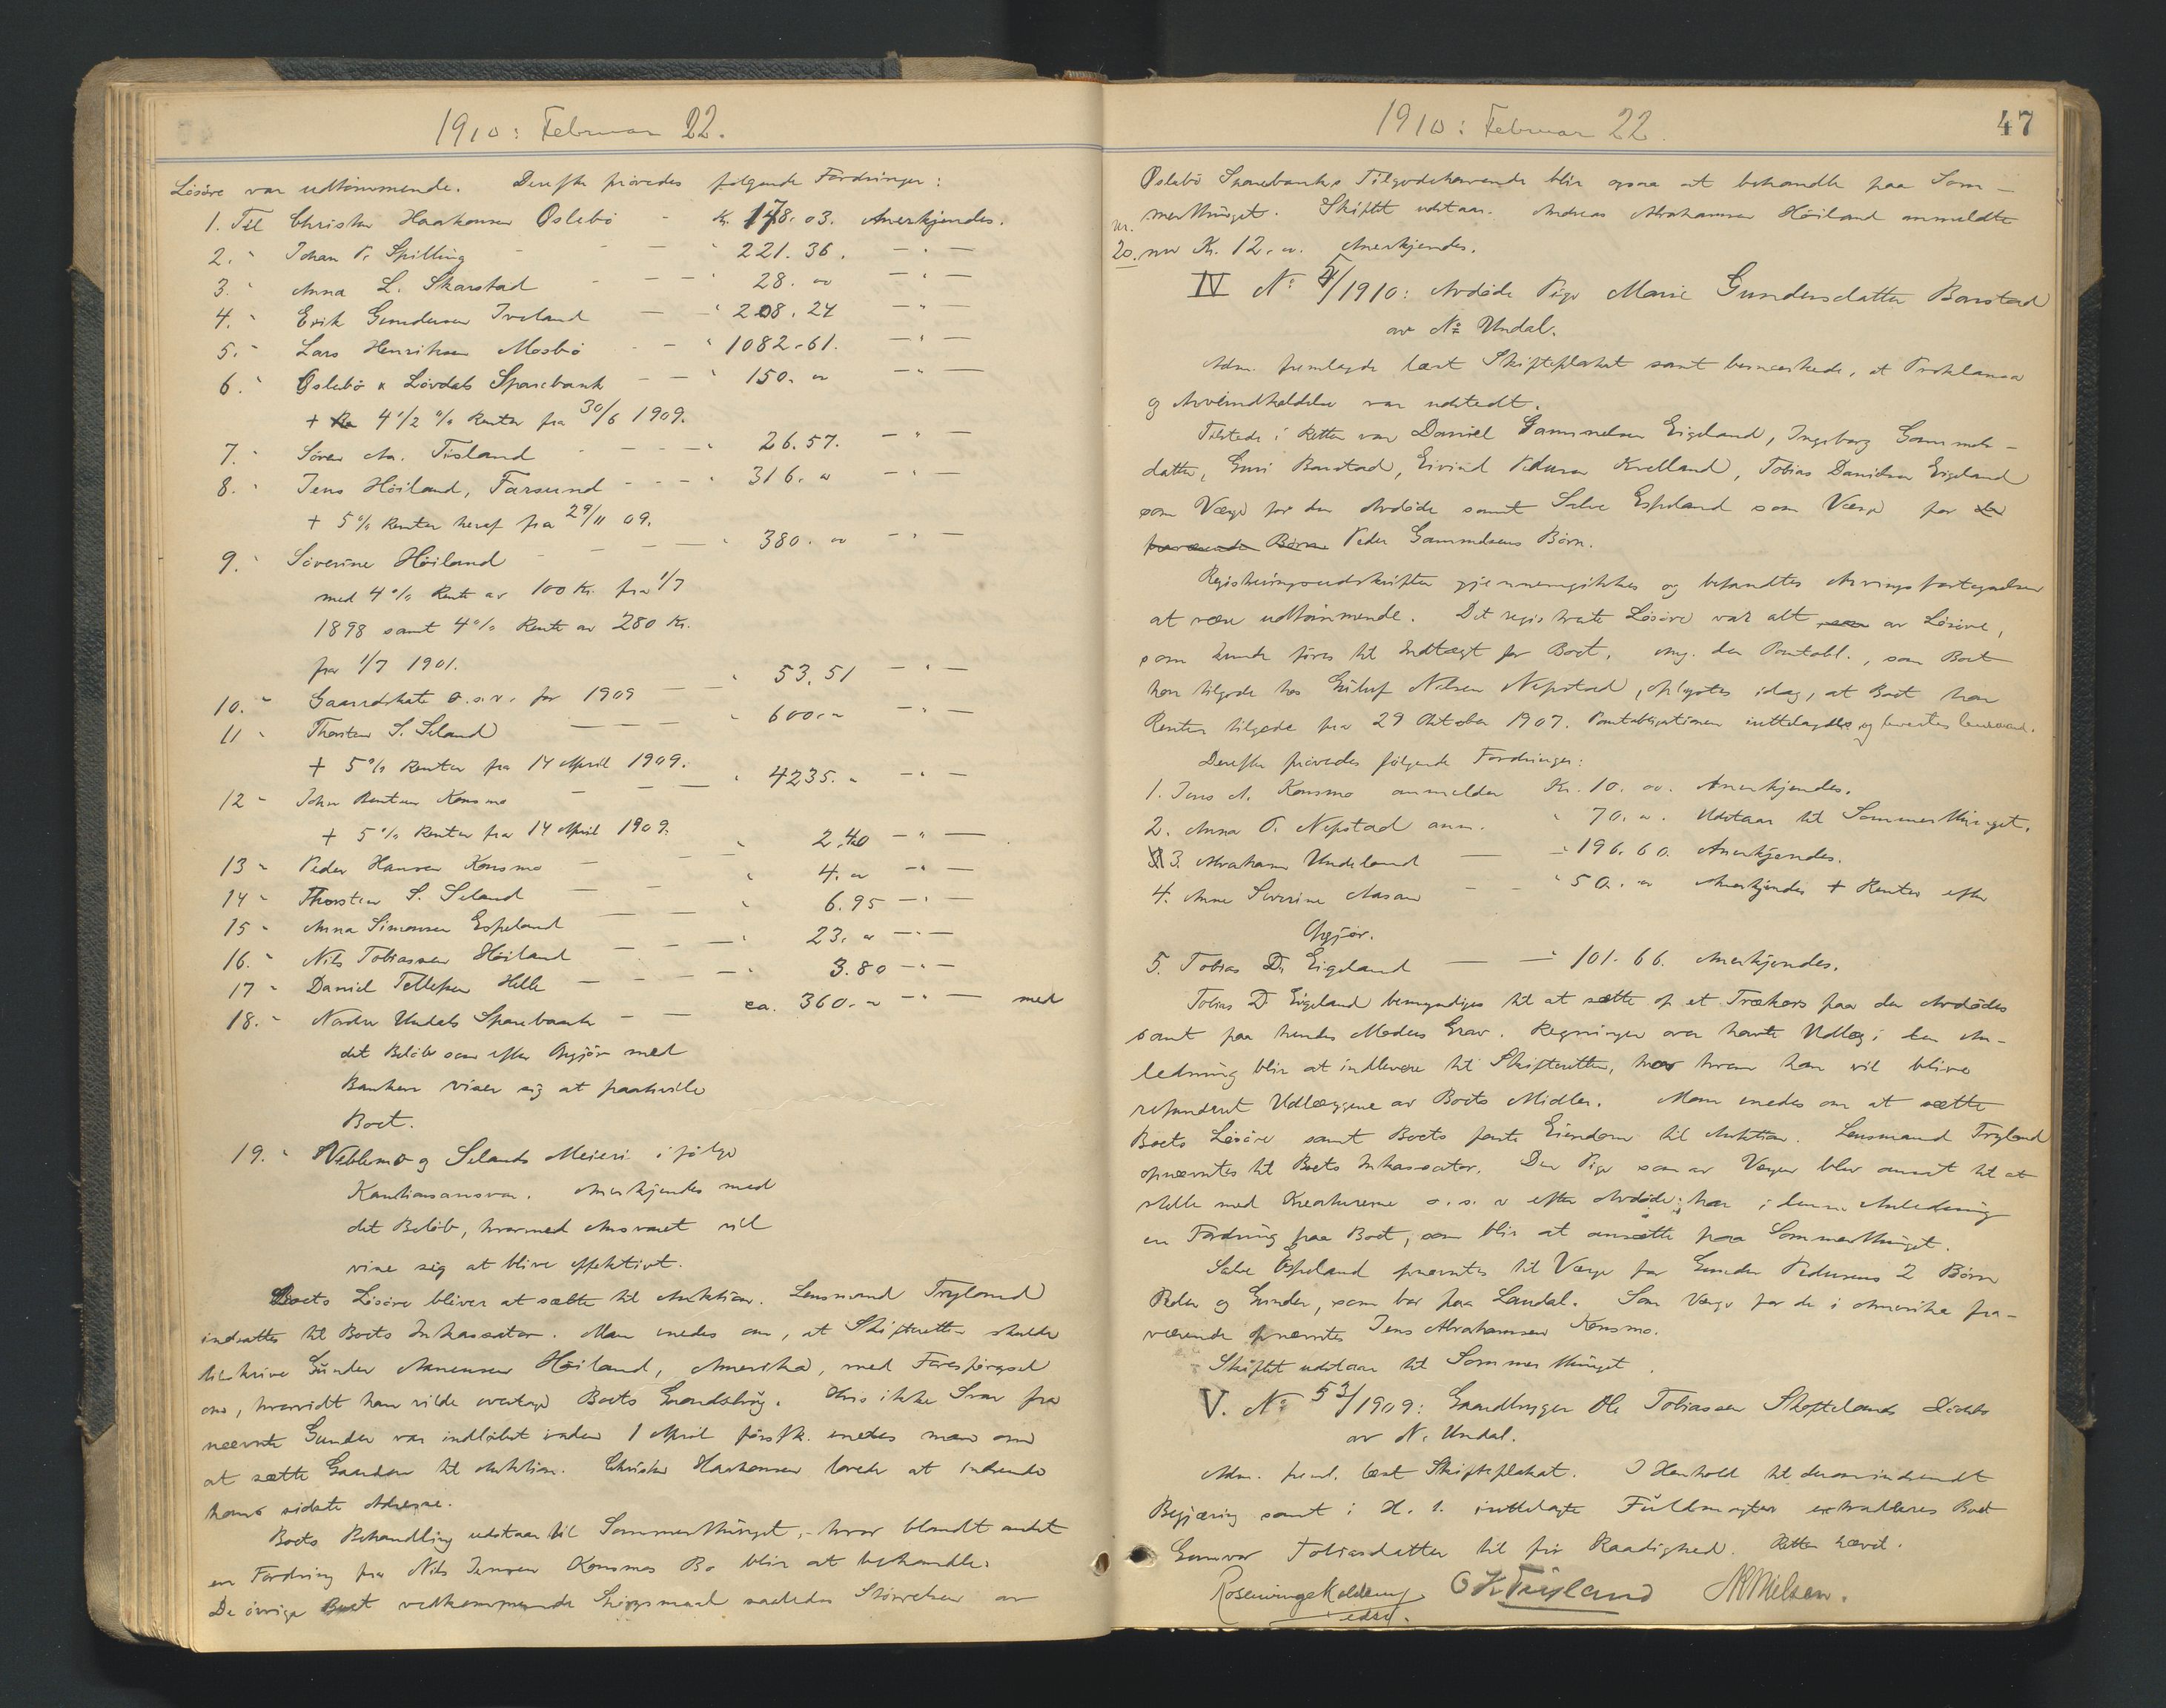 1910: Februar 22.
Lösöre var udtömmende. Derefter prövedes følgende Fordringer:
1. Til Christen Haakonsen Öslebö - Kr. 178.03. Anerkjendes.
2. " Johan P. Spilling - - " 221.36. — " —
3. " Anna L. Skarstad - - " 28. oo — " —
4. " Erik Gundersen Iveland — " 208.24 — " —
5. " Lars Henriksen Mosbö - " 1082.61. — " —
6. " Öslebö & Lövdals Sparebank - " 150. oo — " —
+ 4 1/2 % Renter fra 30/6 1909.
7. " Sören Aa. Tisland - - " 26.57. — " —
8. " Jens Höiland, Farsund - - - " 316. oo — " —
+ 5 % Renter heraf fra 29/11 09.
9. " Söverine Höiland - - - " 380. oo — " —
med 4 % Rente av 100 Kr. fra 1/7
1898 samt 4 % Rente av 280 Kr.
fra 1/7 1901.
10. " Gaardskate o.s.v. for 1909 — " 53.51 — " —
11 " Thorsten S. Seland — — — " 600. oo — " —
+ 5 % Renter fra 14 April 1909.
12 " John Bentsen Konsmo - — — " 4235. oo — " —
+ 5 % Renter fra 14 April 1909.
13 " Peder Hansen Konsmo — " 2.40 — " —
14 " Thorsten S. Seland — — " 4. oo — " —
15 " Anna Simonsen Espeland — — " 6.95 — " —
16. " Nils Tobiassen Höiland — — — " 23. oo — " —
17 " Daniel Tellefsen Helle — — — " 3.80 — " —
18. " Nordre Undals Sparebank — — ca. 360. oo — " — med
det Belöb som efter Opgjör med
Banken viser sig at paahvile
Boet.
19. " Veblemo og Selands Meieri i følge
Kautionsansvar. Anerkjendes med
det Belöb, hvormed Ansvaret vil
vise sig at blive effektivt.
Boets Lösöre bliver at sætte til Auktion. Lensmand Trygland
indsattes til Boets Inkassator. Man enedes om, at Skifteretten skulde
tilskrive Gunder Aanensen Höiland, Amerika, med Forespörgsel
om, hvorvidt han vilde overtage Boets Grundstöge. Hvis ikke Svar fra
nævnte Gunder var indløbet inden 1 April förstk. enedes man om
at sætte Gaarden til Auktion. Christen Haakonsen lovede at indsende
hans sidste Adresse.
Boets Behandling udstaar til Sommerthinget, hvor blandt andet
en Fordring fra Nils Jensen Konsmos Bo blir at behandle.
De övrige Boet vedkommende Spørgsmaal saaledes Störrelsen av
1910: Februar 22.
47
Öslebö Sparebanks Tilgodehavende blir ogsaa at behandle paa Som-
merthinget. Skiftet udstaar. Andreas Abrahamsen Höiland anmeldte
nr. 20. nu Kr. 12. oo. Anerkjendes.
IV No 5/1910: Avdöde Pige Marie Gundersdatter Barstad
av No Undal.
Adm. fremlagde læst Skifteplakat samt bemærkede, at Proklama
og Arveindkaldelse var udstedt.
Tilstede i Retten var Daniel Gammelsen Eigeland, Ingeborg Gammels-
datter, Guri Barstad, Eivind Pedersen Kvelland, Tobias Danielsen Eigeland
som Værge for den Avdöde samt Salve Espeland som Værge for de
fraværende Börn Peder Gammelsens Börn.
Registreringsudskriften gjennemgikkes og befandtes Arvingsfortegnelsen
at være udtömmende. Det registrerte Lösöre var alt av Lösöre,
som kunde föres til Indtægt for Boet. Ang. den Pantobl., som Boet
har tilgode hos Eiluf Nilsen Nepstad, oplystes idag, at Boet har
Renter tilgode fra 29 Oktober 1907. Pantobligationen inttelagdes og
Derefter prövedes fölgende Fordringer:
1. Jens A. Konsmo anmelder Kr. 10. oo. Anerkjendes.
2. Anna O. Nepstad anm. " 70. oo. Udstaar til Sommerthinget.
3. Abraham Undeland — — " 196.60. Anerkjendes.
4. Anne Severine Aasan - - " 50. oo Anerkjendes + Renter efter
Opgjör.
5. Tobias D. Eigeland — — " 101.66. Anerkjendes.
Tobias D. Eigeland bemyndiges til at sætte op et Trækors paa den Avdödes
samt paa hendes Moders Grav. Regningen over havte Udlæg i den An-
ledning blir at indlevere til Skifteretten, hvor han vil blive
refunderet Udlæggene av Boets Midler. Man enedes om at sætte
Boets Lösöre samt Boets faste Eiendom til Auktion. Lensmand Trygland
opnævntes til Boets Inkassator. Den Pige som av Værgen blev ansat til at
stelle med Kreaturerne o.s.v. efter Avdöde, har i denne Anledning
en Fordring paa Boet, som blir at ansætte paa Sommerthinget.
Salve Espeland opnævntes til Værge for Gunder Pedersens 2 Börn
Peder og Gunder, som bor paa Laudal. Som Værge for de i Amerika fra-
værende opnævntes Jens Abrahamsen Konsmo.
Skiftet udstaar til Sommerthinget.
V. No 53/1909: Gaardbruger Ole Tobiassen Skoftelands Dödsbo
av N. Undal.
Adm. freml. læst Skifteplakat. I Henhold til derom indsendt
Begjæring samt i H. t. inttelagte Fuldmagter extraderes Boet
Gunvor Tobiasdatter til fri Raadighed. Retten hævet.
Roseninge Kolderup
edsv.
O K Trygland
A R Nielsen.